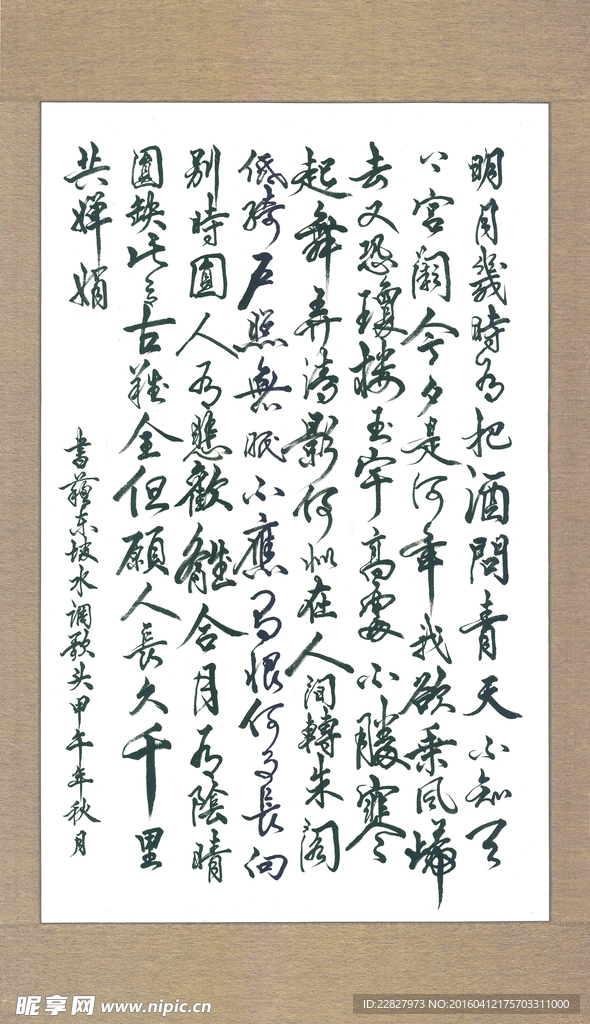 明月幾時有把酒問青天不知天
上宮闕今夕是何年我欲乘风歸
去又恐瓊楼玉宇高處不勝寒
起舞弄清影何似在人間轉朱閣
低綺戶照無眠不應有恨何事長向
別時圓人有悲歡離合月有陰晴
圓缺此事古難全但願人長久千里
共嬋娟
書蘇东坡水调歌头甲午年秋月
昵享网 www.nipic.cn
ID:22827973 NO:20160412175703311000